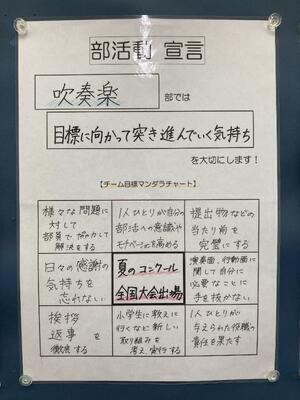 部活動 宣言
吹奏楽 部では
目標に向かって突き進んでいく気持ち
を大切にします！
【チーム目標マンダラチャート】
様々な問題に
対して
部員で協力して
解決をする
1人ひとりが自分の
部活への意識や
モチベーションを高める
提出物などの
当たり前を
完璧にする
日々の感謝の
気持ちを
忘れない
夏のコンクール
全国大会出場
演奏面、行動面に
関して自分に
必要なことに
手を抜かない
挨拶
返事を
徹底する
小学生に教えに
行くなど新しい
取り組みを
考え、実行する
1人ひとりが
与えられた役職の
責任を果たす